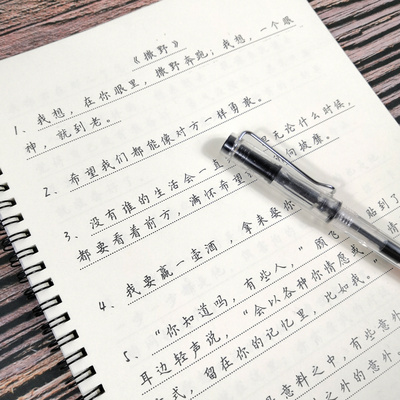 《撒野》
1、我想，在你眼里，撒野奔跑；我想，一个眼
神，就到老。
2、希望我们都能像对方一样勇敢。
3、没有谁的生活会一直 无论什么时候，
都要看看前方，满怀希望
4、我要赢一壶酒，拿来娶你 贴到了
5、“你知道吗，有些人，”顾飞 情
耳边轻声说，“会以各种你情愿或
式，留在你的记忆里，比如我。”
意料之中，有些意外
之外的意外。